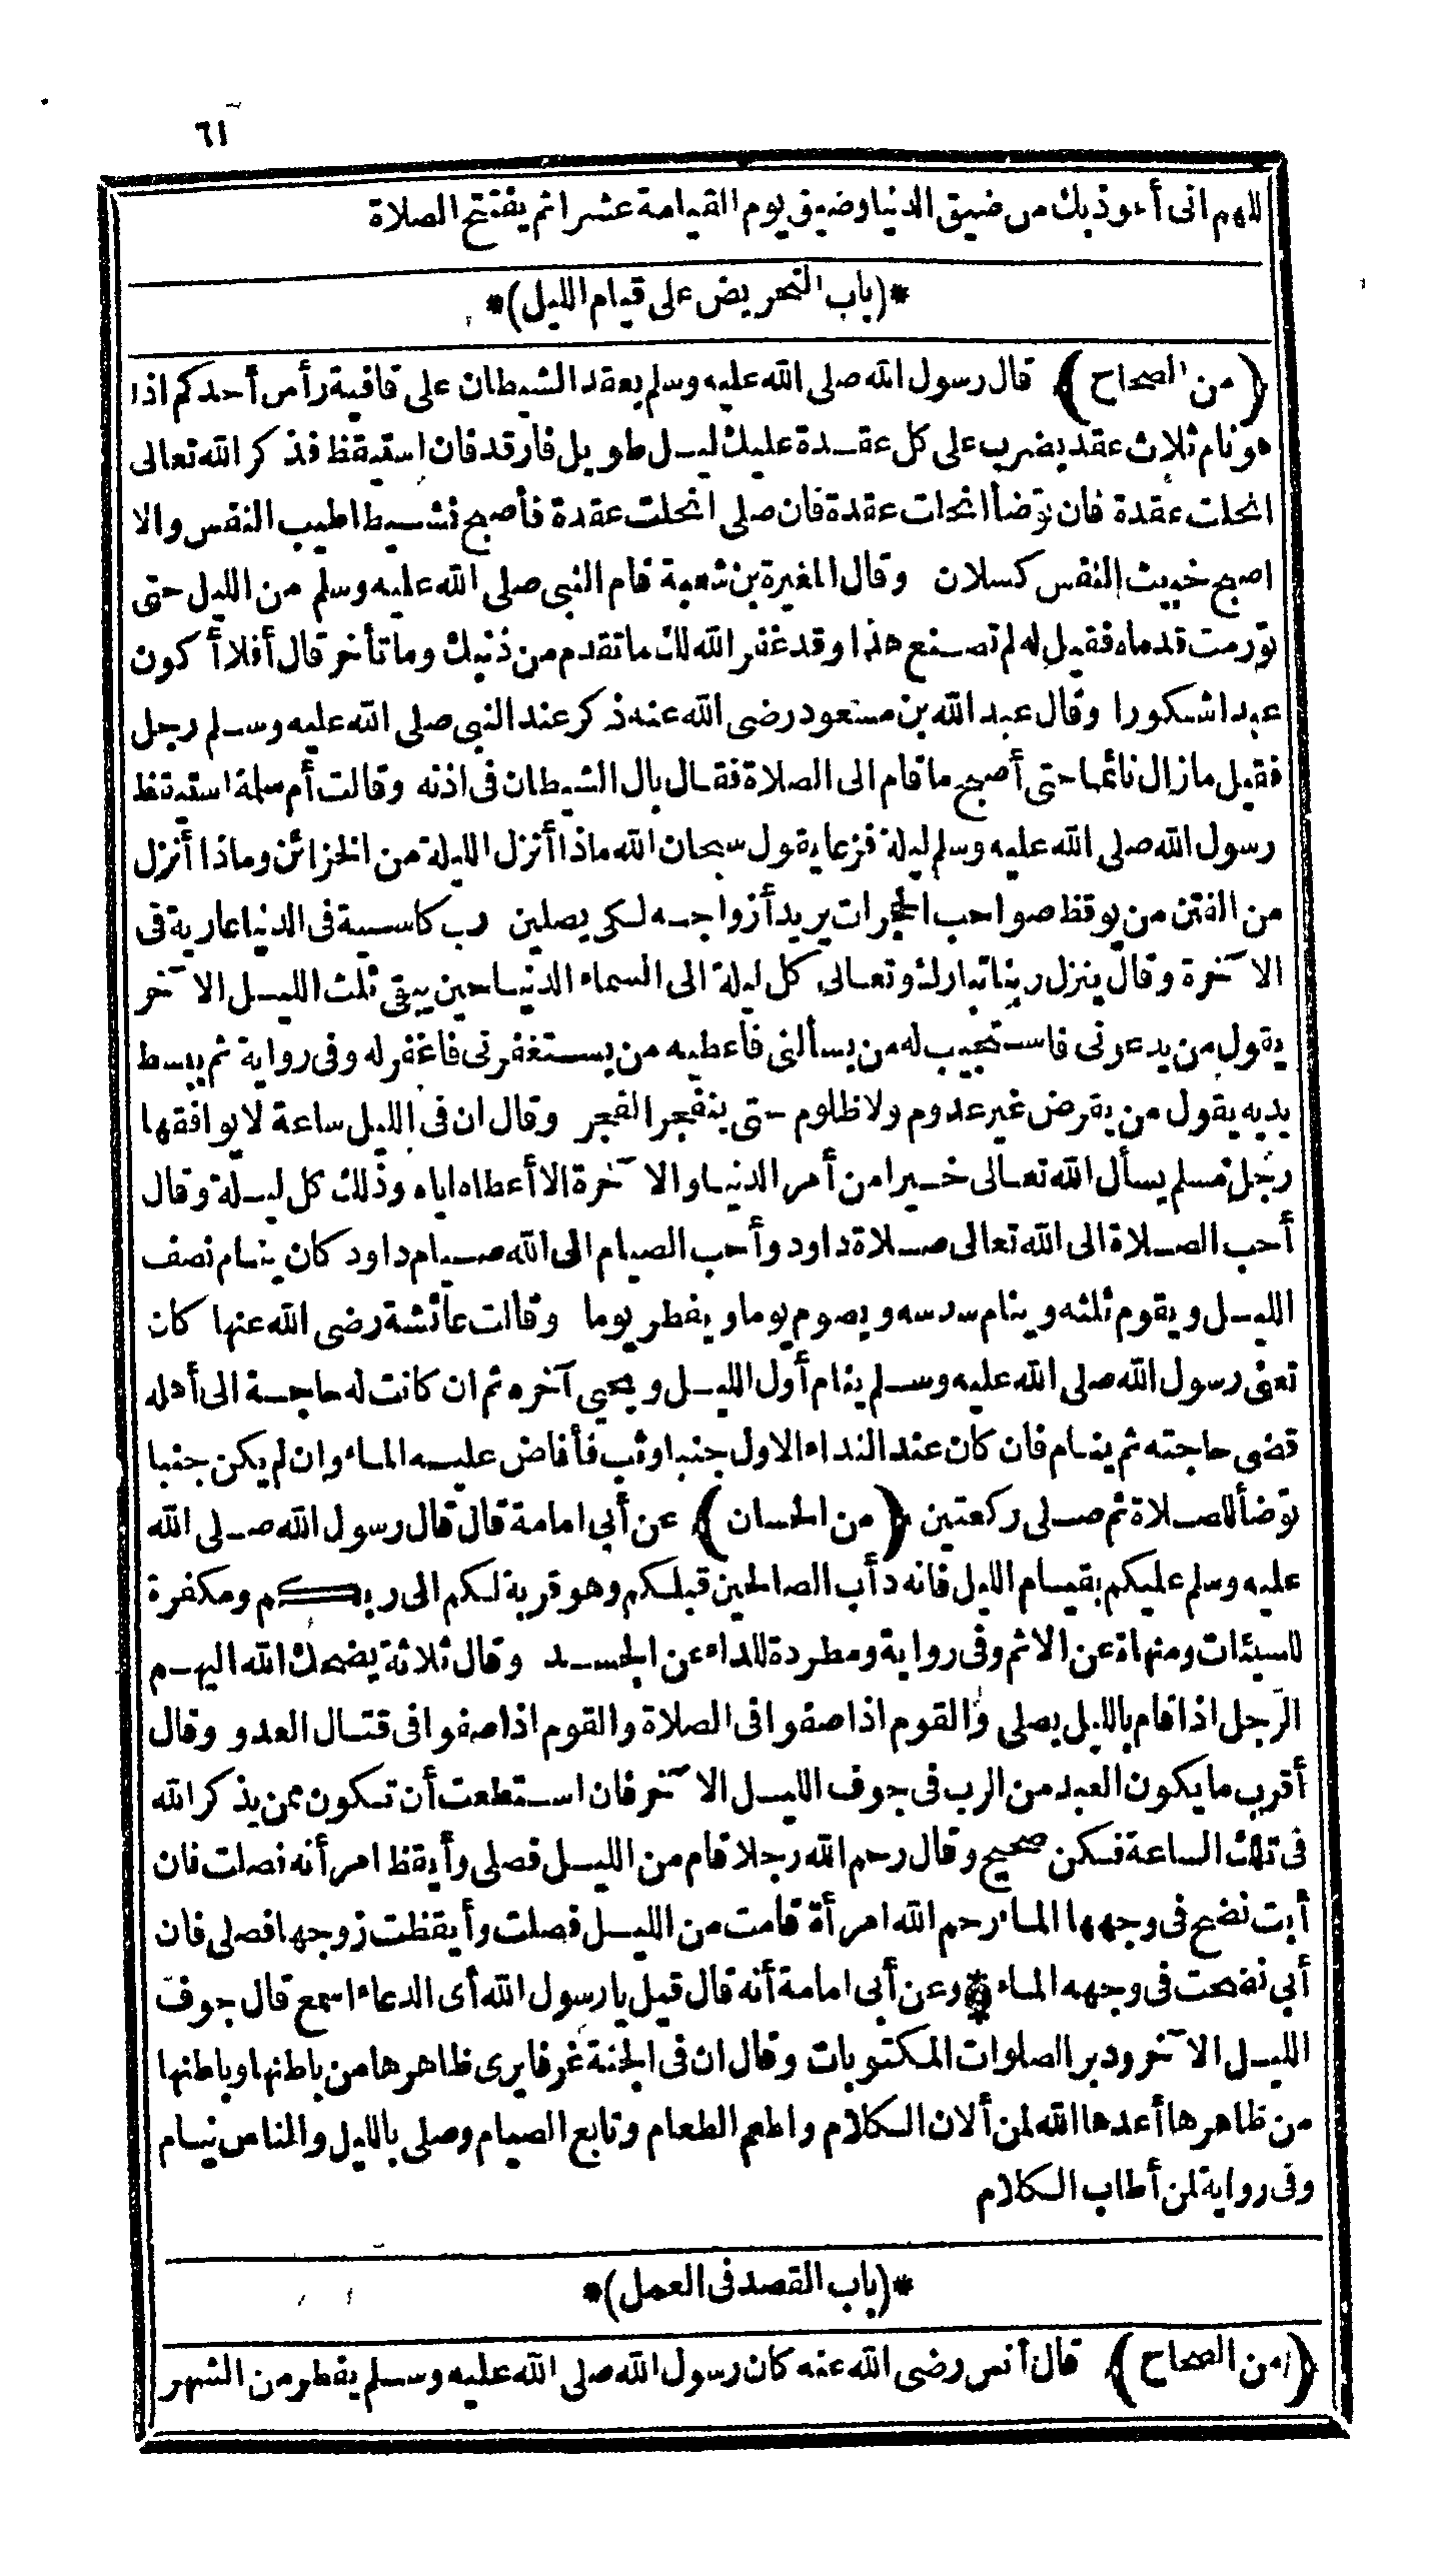 ٦١
للهم انى أعوذ بك من ضيق الدنيا وضيق يوم القيامة عشرا ثم يفتتح الصلاة
*(باب التحريض على قيام الليل)*
(من الصحاح) قال رسول الله صلى الله عليه وسلم يعقد الشيطان على قافية رأس أحدكم اذا
هو نام ثلاث عقد يضرب على كل عقدة عليك ليل طويل فارقد فان استيقظ فذكر الله تعالى
انحلت عقدة فان توضأ انحلت عقدة فان صلى انحلت عقدة فأصبح نشيطا طيب النفس والا
اصبح خبيث النفس كسلان وقال المغيرة بن شعبة قام النبى صلى الله عليه وسلم من الليل حتى
تورمت قدماه فقيل له لم تصنع هذا وقد غفر الله لك ما تقدم من ذنبك وما تأخر قال أفلا أكون
عبدا شكورا وقال عبد الله بن مسعود رضى الله عنه ذكر عند النبى صلى الله عليه وسلم رجل
فقيل ما زال نائما حتى أصبح ما قام الى الصلاة فقال بال الشيطان فى اذنه وقالت أم سلمة استيقظ
رسول الله صلى الله عليه وسلم ليلة فزعا يقول سبحان الله ماذا أنزل الليلة من الخزائن وماذا أنزل
من الفتن من يوقظ صواحب الحجرات يريد أزواجه لكى يصلين رب كاسية فى الدنيا عارية فى
الآخرة وقال ينزل ربنا تبارك وتعالى كل ليلة الى السماء الدنيا حين يبقى ثلث الليل الآخر
يقول من يدعونى فاستجيب له من يسألنى فأعطيه من يستغفرنى فاغفر له وفى رواية ثم يبسط
يديه يقول من يقرض غير عدوم ولا ظلوم حتى ينفجر الفجر وقال ان فى الليل ساعة لا يوافقها
رجل مسلم يسأل الله تعالى خيرا من أمر الدنيا والآخرة الا أعطاه اياه وذلك كل ليلة وقال
أحب الصلاة الى الله تعالى صلاة داود وأحب الصيام الى الله صيام داود كان ينام نصف
الليل ويقوم ثلثه وينام سدسه ويصوم يوما ويفطر يوما وقالت عائشة رضى الله عنها كان
تعنى رسول الله صلى الله عليه وسلم ينام أول الليل ويحيى آخره ثم ان كانت له حاجة الى أهله
قضى حاجته ثم ينام فان كان عند النداء الاول جنبا وثب فأفاض عليه الماء وان لم يكن جنبا
توضأ للصلاة ثم صلى ركعتين (من الحسان) عن أبى امامة قال قال رسول الله صلى الله
عليه وسلم عليكم بقيام الليل فانه دأب الصالحين قبلكم وهو قربة لكم الى ربكم ومكفرة
للسيئات ومنهاة عن الاثم وفى رواية ومطردة للداء عن الجسد وقال ثلاثة يضحك الله اليهم
الرجل اذا قام بالليل يصلى والقوم اذا صفوا فى الصلاة والقوم اذا صفوا فى قتال العدو وقال
أقرب ما يكون العبد من الرب فى جوف الليل الآخر فان استطعت أن تكون ممن يذكر الله
فى تلك الساعة فكن صحيح وقال رحم الله رجلا قام من الليل فصلى وأيقظ امرأته فصلت فان
أبت نضح فى وجهها الماء رحم الله امرأة قامت من الليل فصلت وأيقظت زوجها فصلى فان
أبى نضحت فى وجهه الماء * وعن أبى امامة أنه قال قيل يا رسول الله أى الدعاء اسمع قال جوف
الليل الآخر ودبر الصلوات المكتوبات وقال ان فى الجنة غرفا يرى ظاهرها من باطنها وباطنها
من ظاهرها أعدها الله لمن ألان الكلام واطعم الطعام وتابع الصيام وصلى بالليل والناس نيام
وفى رواية لمن أطاب الكلام
*(باب القصد فى العمل)*
(من الصحاح) قال أنس رضى الله عنه كان رسول الله صلى الله عليه وسلم يفطر من الشهر